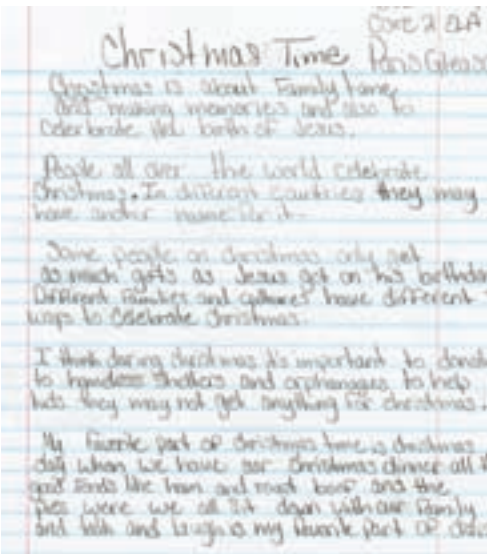 Core 2 ELA
Christmas Time Paris Gleaso
Christmas is about Family time,
and making memories and also to
Celerbrate the birth of Jesus.
People all over the world celebrate
Christmas. In different countries they may
have another name for it.
Some people on Christmas only get
as much gifts as Jesus got on his birthday
Different Families and cultures have different
ways to celebrate christmas.
I think during christmas it's important to donate
to homeless shelters and orphanages to help
kids they may not get anything for christmas.
My favorite part of christmas time is christmas
day when we have our christmas dinner all th
good foods like ham and roast beef and the
pies were we all sit down with our family
and talk and laugh is my favorite part of